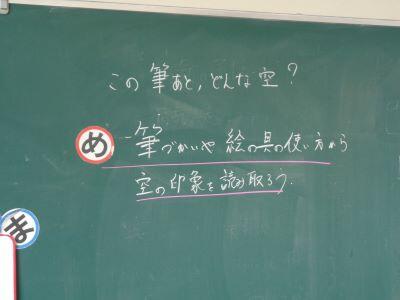 この筆あと,どんな空?
め 筆づかいや絵の具の使い方から
空の印象を読み取ろう.
ま